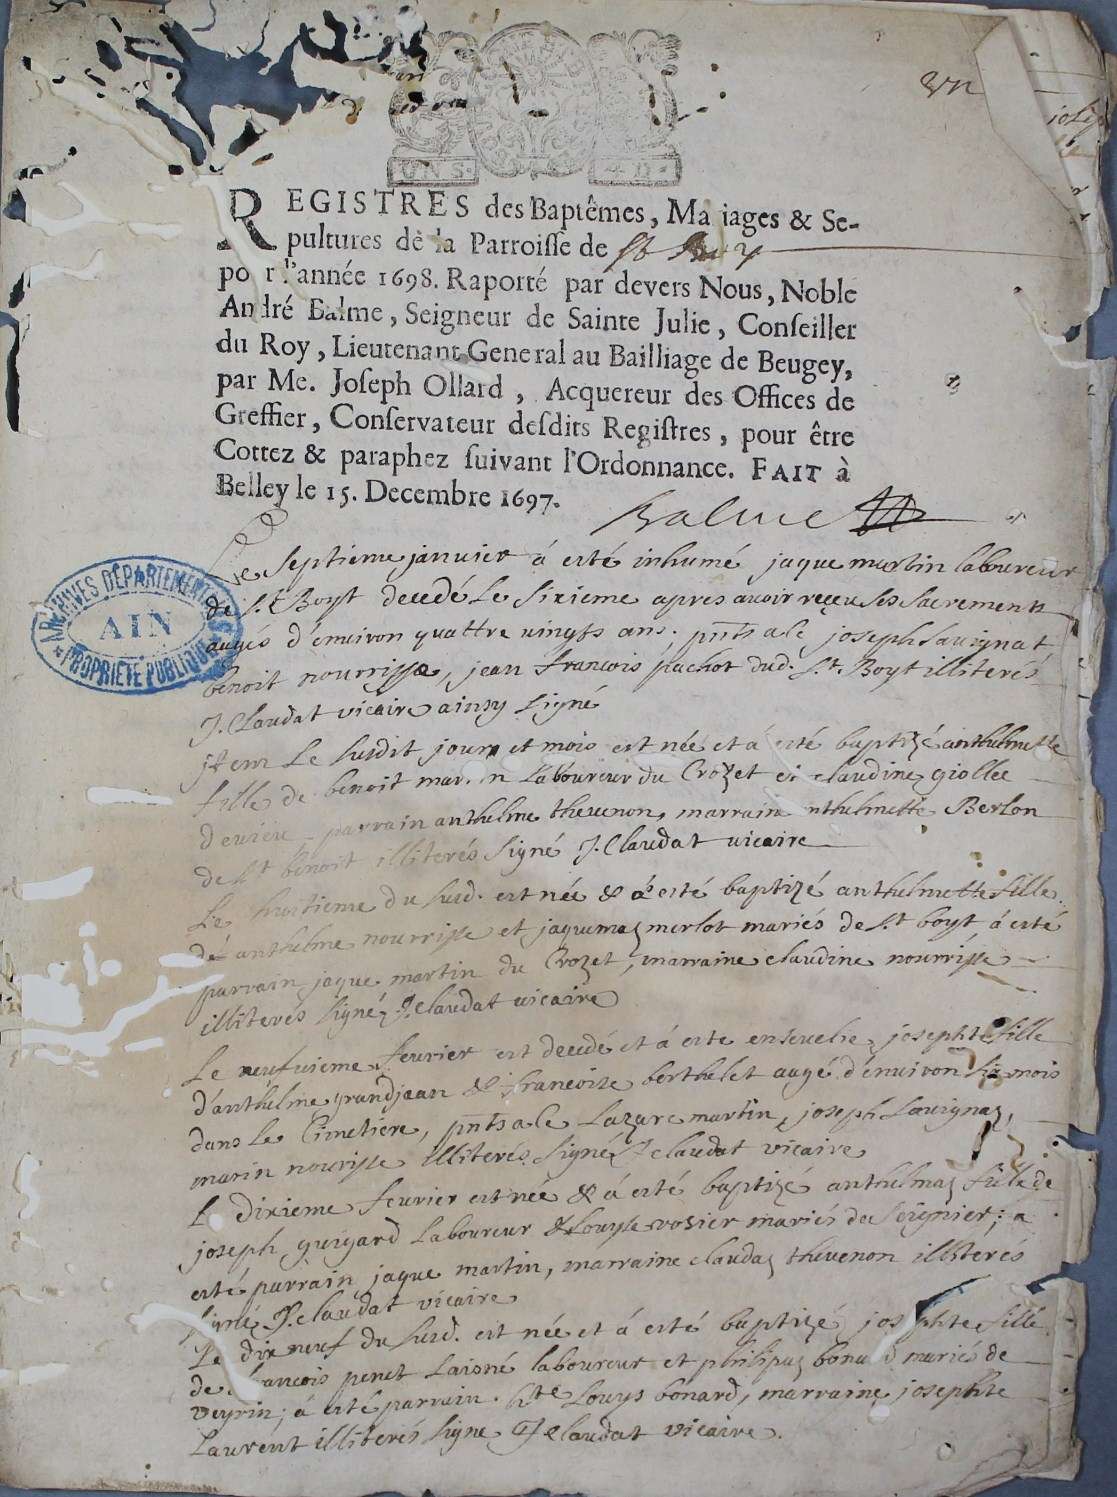 UN S. 4 D.
REGISTRES des Baptêmes, Ma iages & Se-
pultures de la Parroisse de St
po r l'année 1698. Raporté par devers Nous, Noble
André Balme, Seigneur de Sainte Julie, Conseiller
du Roy, Lieutenant General au Bailliage de Beugey,
par Me. Joseph Ollard, Acquereur des Offices de
Greffier, Conservateur desdits Registres, pour être
Cottez & paraphez suivant l'Ordonnance. FAIT à
Belley le 15. Decembre 1697.
Balme
ARCHIVES DÉPARTEMENTALES
AIN
PROPRIÉTÉ PUBLIQUE
Le septieme janvier á esté inhumé jaque martin laboureur
de St Boyt decedé Le sixieme apres avoir reçeu ses sacrements
augés d'environ quattre vingts ans. pnts a le joseph Sauignat
benoit nourrisse, jean francois pachot dud. St. Boyt illiterés
J. Claudat vicaire ainsy signé
Item Le susdit jour et mois est née et á esté baptizé anthelmette
fille de benoit mar in Laboureur du Crozet et claudine giollee
parrain anthelme thevenon, marrain nthelmette Berlon
de St benoit illiterés signé J. Claudat vicaire
Le huitieme du susd. est née & á esté baptizé anthelmette fille
de anthelme nourrisse et jaquemaz merlot mariés de St boyt, á esté
parrain jaque martin du Crozet, marraine claudine nourrisse
illiterés signé J. Claudat vicaire
Le neufvieme fevrier est decedé et á esté ensevelie josephte fille
d'anthelme grandjean & francoise berthelet augé d'environ six mois
dans Le Cimetiere, pnts a le Lazare martin, joseph Sauignaz,
marin nourisse illiterés signé J claudat vicaire
L dixieme fevrier est née & á esté baptizé anthelmaz fille de
joseph guigard Laboureur & Louyse rosier mariés de Seignier; a
esté parrain jaque martin, marraine claudaz thevenon illiterés
signé J. claudat vicaire
Le dix neuf du susd. est née et á esté baptizé jos phte fille
de francois penet Laisné laboureur et philipaz bona d mariés de
veyrin; á esté parrain. Louys bonard, marraine josephte
Laurent illiterés signe J claudat vicaire.